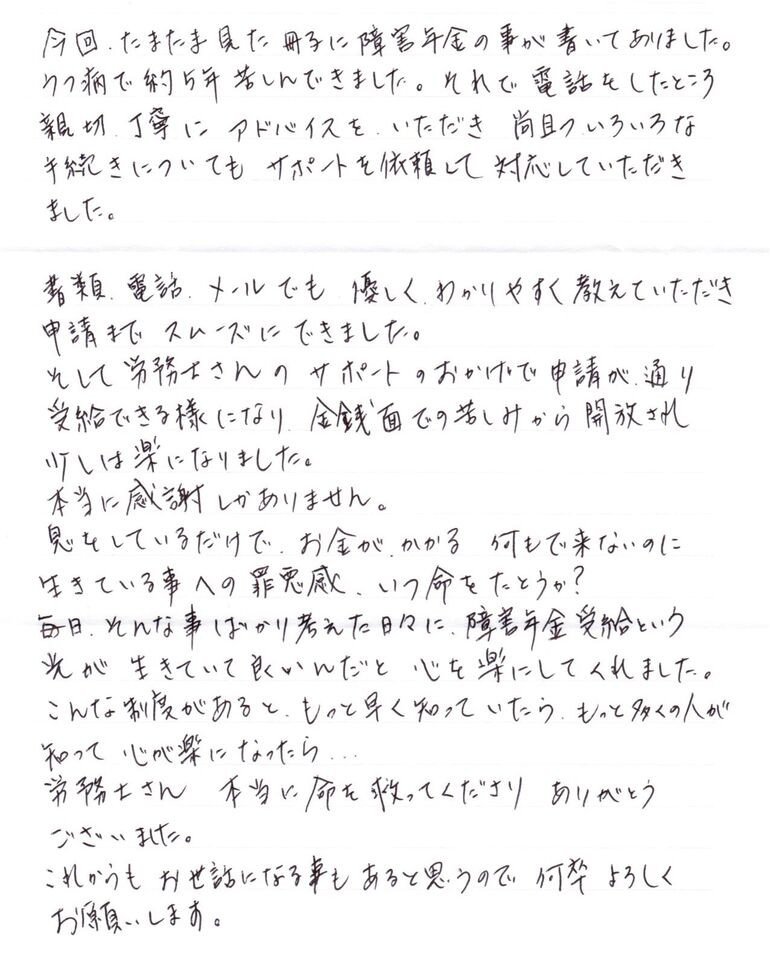 今回、たまたま見た冊子に障害年金の事が書いてありました。
うつ病で約5年苦しんできました。それで電話をしたところ
親切、丁寧にアドバイスを、いただき 尚且ついろいろな
手続きについてもサポートを依頼して対応していただき
ました。
書類、電話、メールでも、優しく、わかりやすく教えていただき
申請までスムーズにできました。
そして労務士さんのサポートのおかげで申請が、通り
受給できる様になり、金銭面での苦しみから開放され
少しは楽になりました。
本当に感謝しかありません。
息をしているだけで、お金が、かかる 何もで来ないのに
生きている事への罪悪感、いつ命をたとうか?
毎日、そんな事ばかり考えた日々に、障害年金受給という
光が 生きていて良いんだと 心を楽にしてくれました。
こんな制度があると、もっと早く知っていたら、もっと多くの人が
知って 心が楽になったら...
労務士さん 本当に命を救ってくださり ありがとう
ございました。
これからも お世話になる事も あると思うので 何卒 よろしく
お願いします。